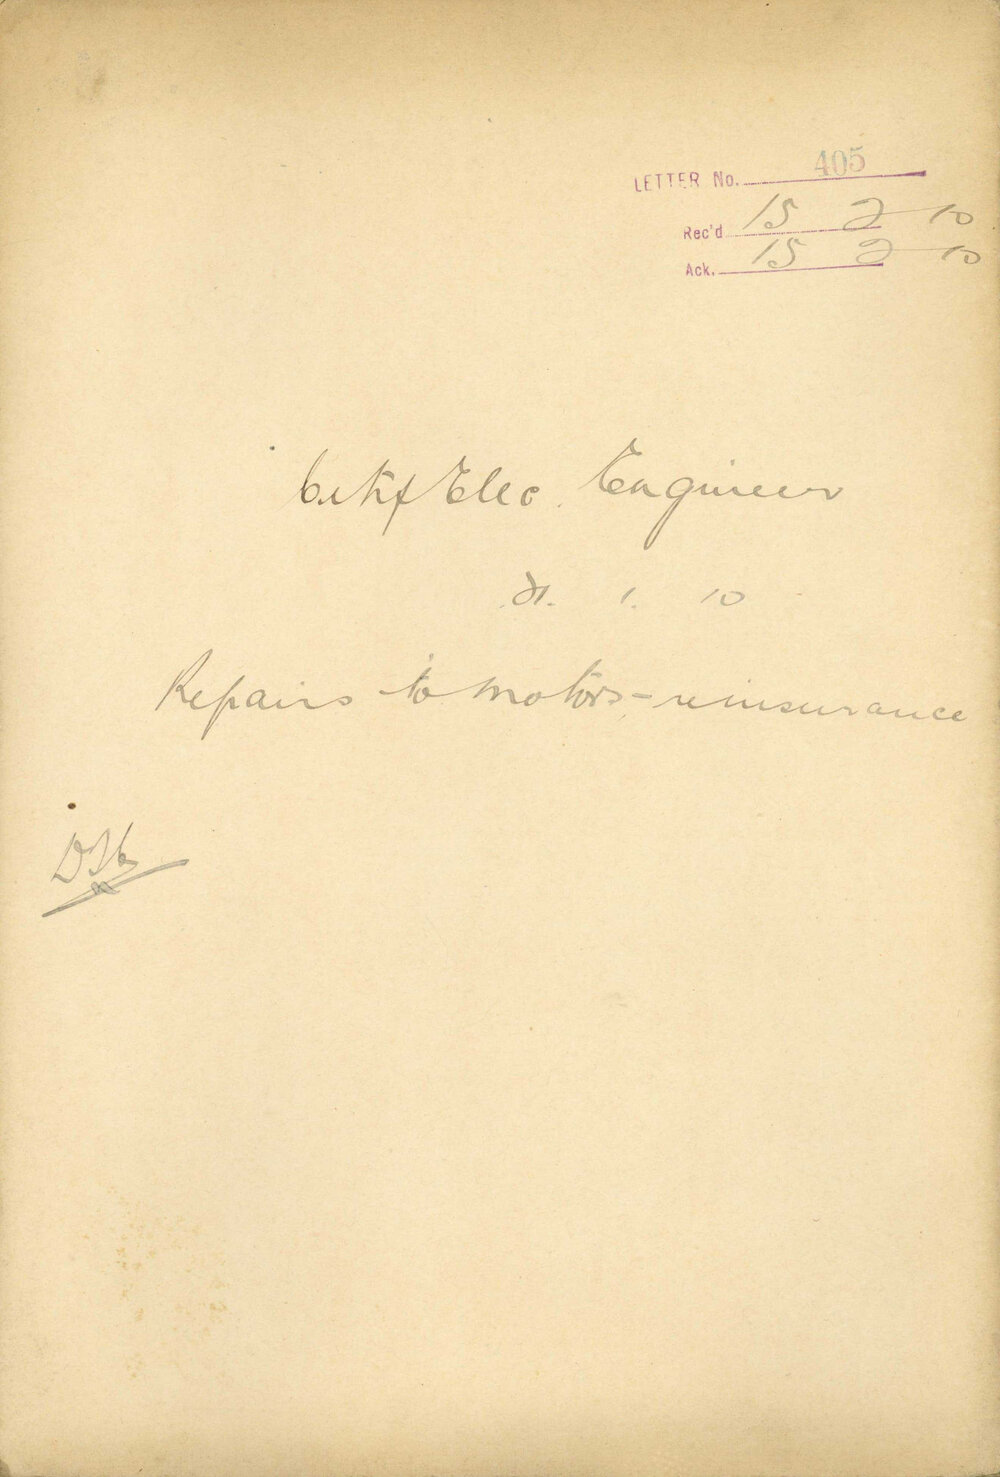 LETTER No. 405
Rec'd 15 2 10
Ack. 15 2 10
City Elec. Engineer
31. 1. 10
Repairs to motors - reinsurance